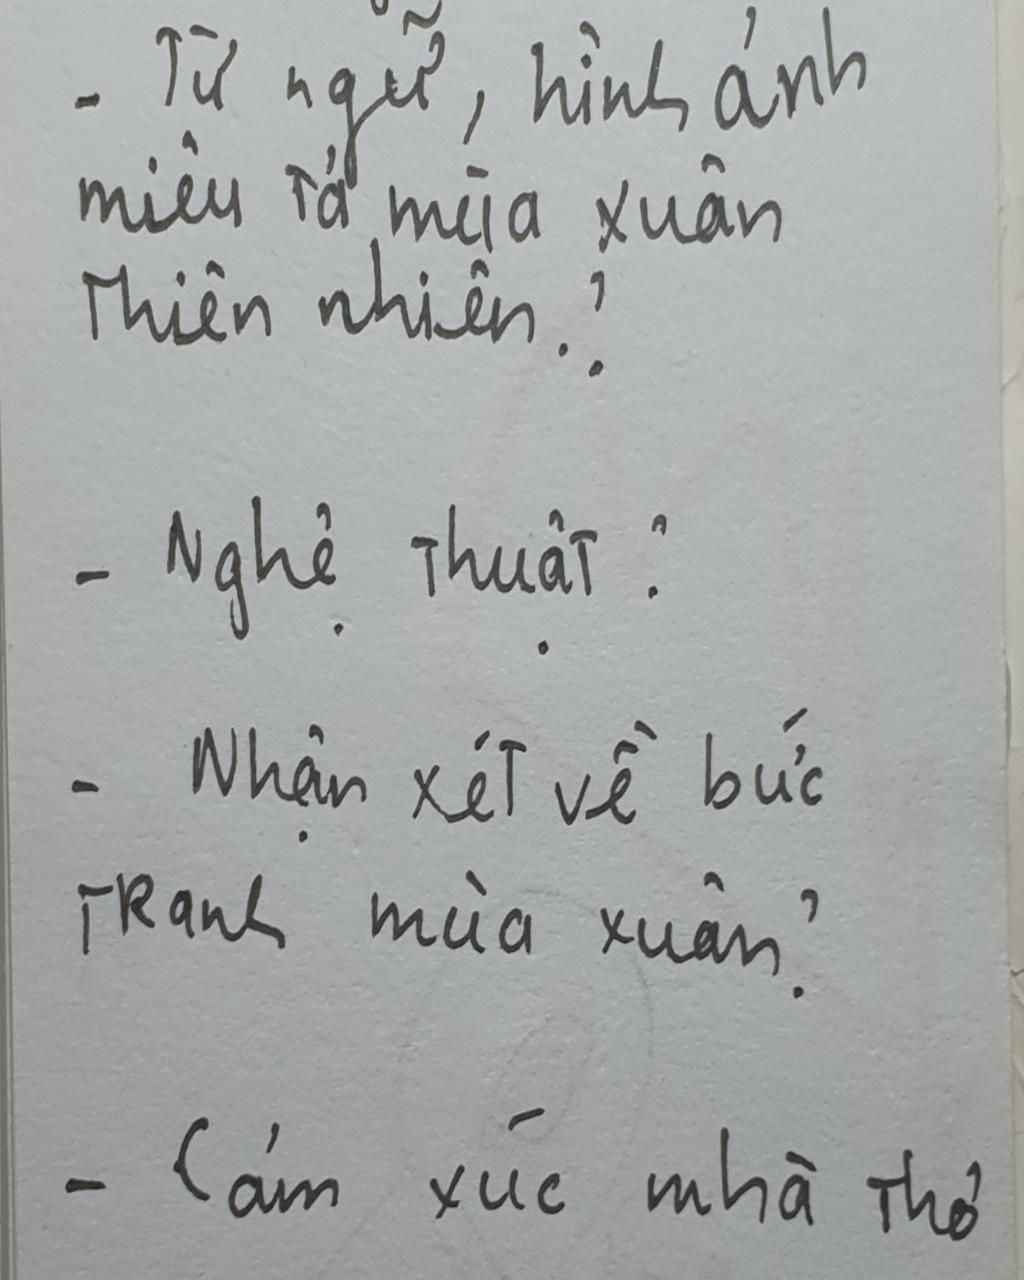 - Từ ngữ, hình ảnh
miêu tả mùa xuân
thiên nhiên.?
- Nghệ thuật :
- Nhận xét về bức
tranh mùa xuân?
- Cảm xúc nhà thơ